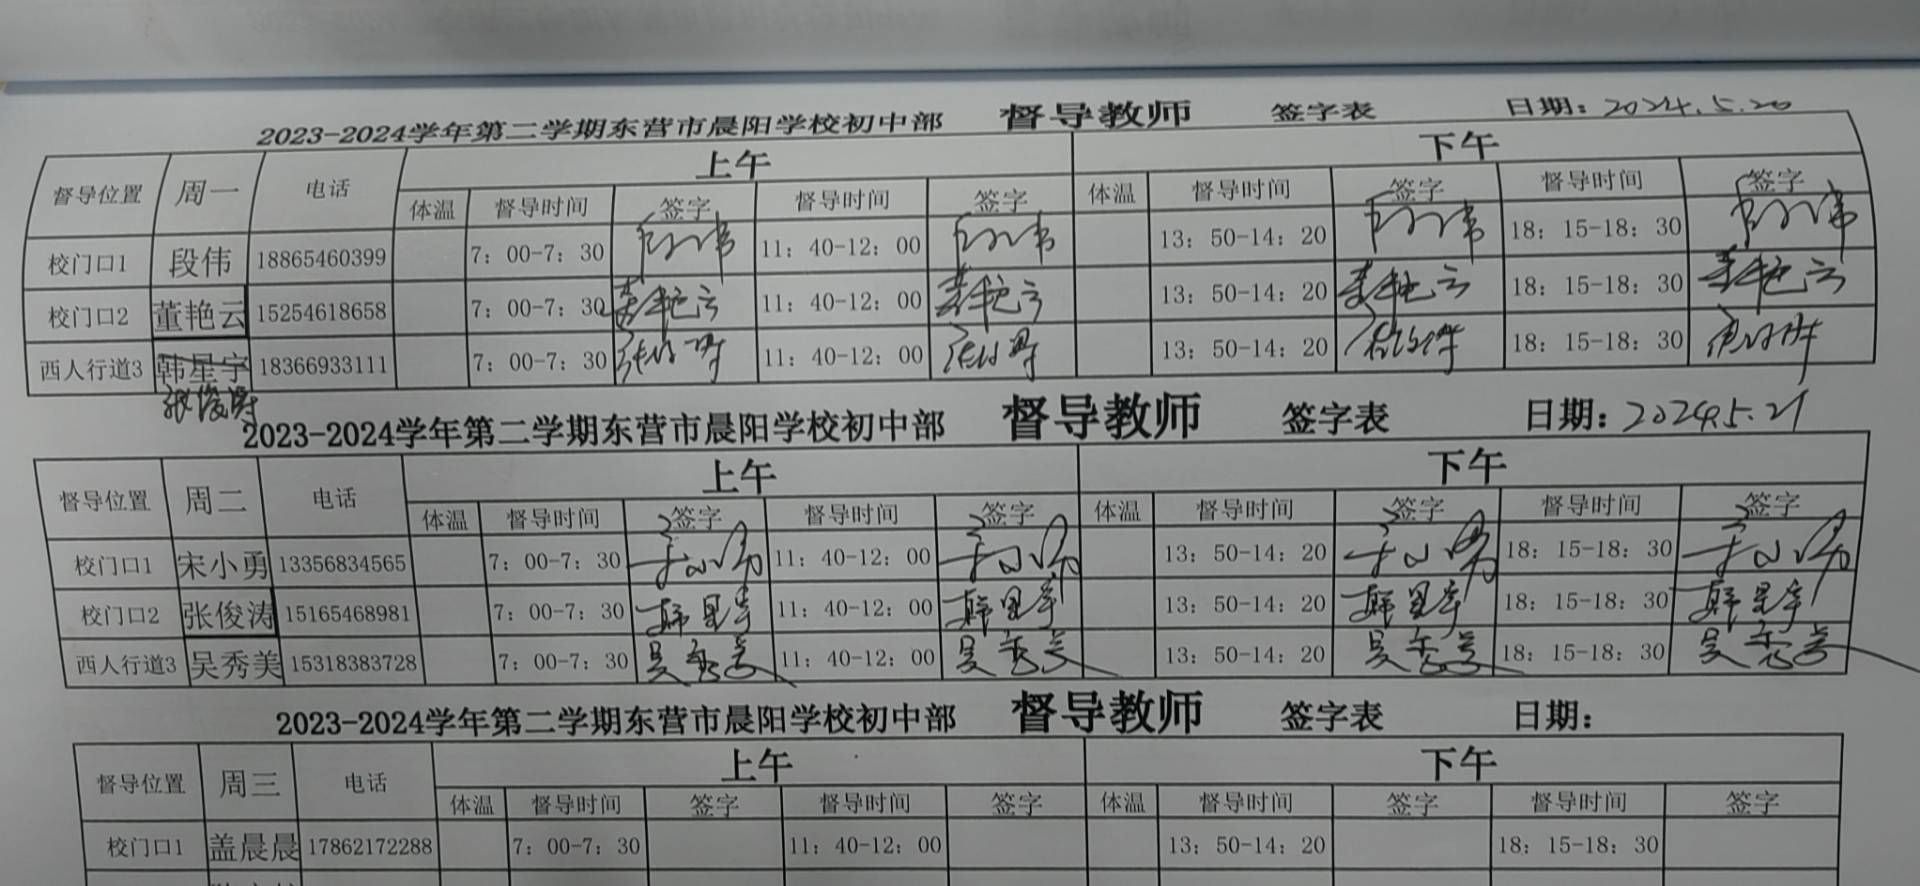 2023-2024学年第二学期东营市晨阳学校初中部 督导教师 签字表 日期：2024.5.20
督导位置 周一 电话 上午 下午
体温 督导时间 签字 督导时间 签字 体温 督导时间 签字 督导时间 签字
校门口1 段伟 18865460399 7：00-7：30 段伟 11：40-12：00 段伟 13：50-14：20 段伟 18：15-18：30 段伟
校门口2 董艳云 15254618658 7：00-7：30 董艳云 11：40-12：00 董艳云 13：50-14：20 董艳云 18：15-18：30 董艳云
西人行道3 韩星宇 18366933111 7：00-7：30 张俊涛 11：40-12：00 张俊涛 13：50-14：20 18：15-18：30
张俊涛
2023-2024学年第二学期东营市晨阳学校初中部 督导教师 签字表 日期：2024.5.21
督导位置 周二 电话 上午 下午
体温 督导时间 签字 督导时间 签字 体温 督导时间 签字 督导时间 签字
校门口1 宋小勇 13356834565 7：00-7：30 宋小勇 11：40-12：00 宋小勇 13：50-14：20 宋小勇 18：15-18：30 宋小勇
校门口2 张俊涛 15165468981 7：00-7：30 韩星宇 11：40-12：00 韩星宇 13：50-14：20 韩星宇 18：15-18：30 韩星宇
西人行道3 吴秀美 15318383728 7：00-7：30 吴秀美 11：40-12：00 吴秀美 13：50-14：20 吴秀美 18：15-18：30 吴秀美
2023-2024学年第二学期东营市晨阳学校初中部 督导教师 签字表 日期：
督导位置 周三 电话 上午 下午
体温 督导时间 签字 督导时间 签字 体温 督导时间 签字 督导时间 签字
校门口1 盖晨晨 17862172288 7：00-7：30 11：40-12：00 13：50-14：20 18：15-18：30